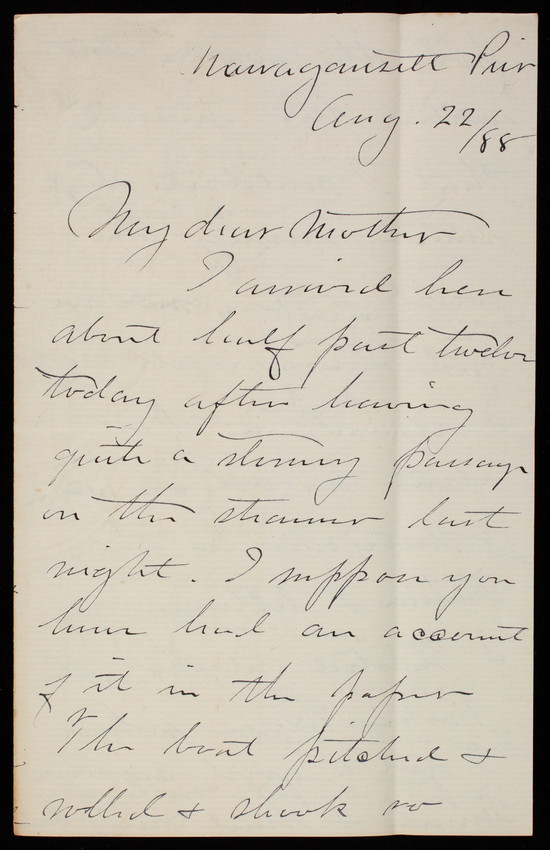 Narragansett Pier
Aug. 22/88
My dear Mother
I arrived here
about half past twelve
today after having
quite a stormy passage
on the steamer last
night. I suppose you
have had an account
of it in the paper
The boat pitched &
rolled & shook so